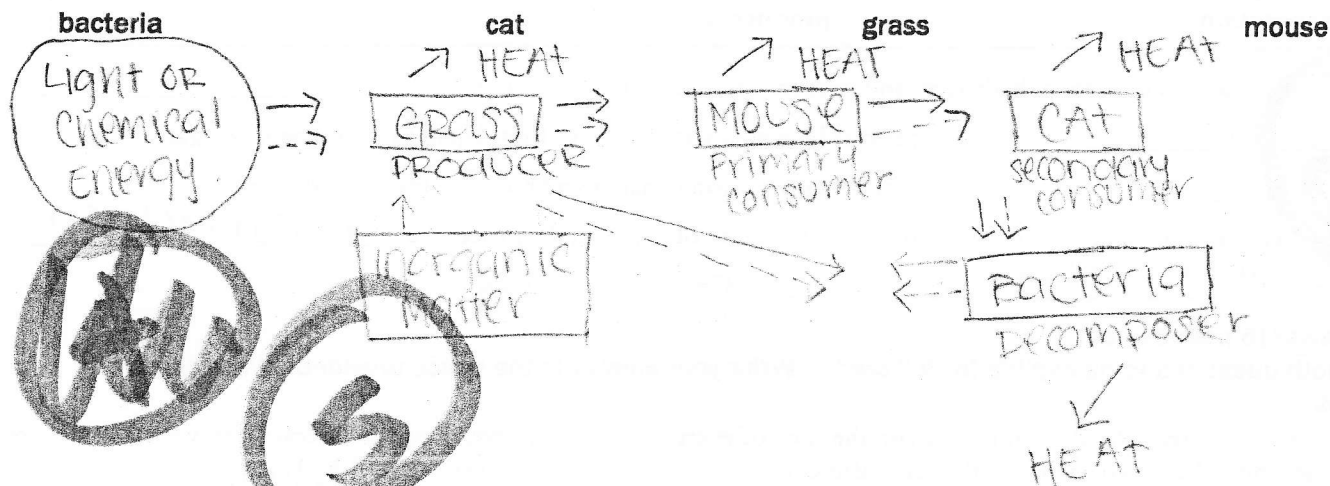 bacteria cat grass mouse
HEAT HEAT HEAT
Light OR
Chemical
Energy
GRASS
PRODUCER
MOUSE
Primary
consumer
CAt
secondary
consumer
Inorganic
Matter
Bacteria
Decomposer
HEAt
S